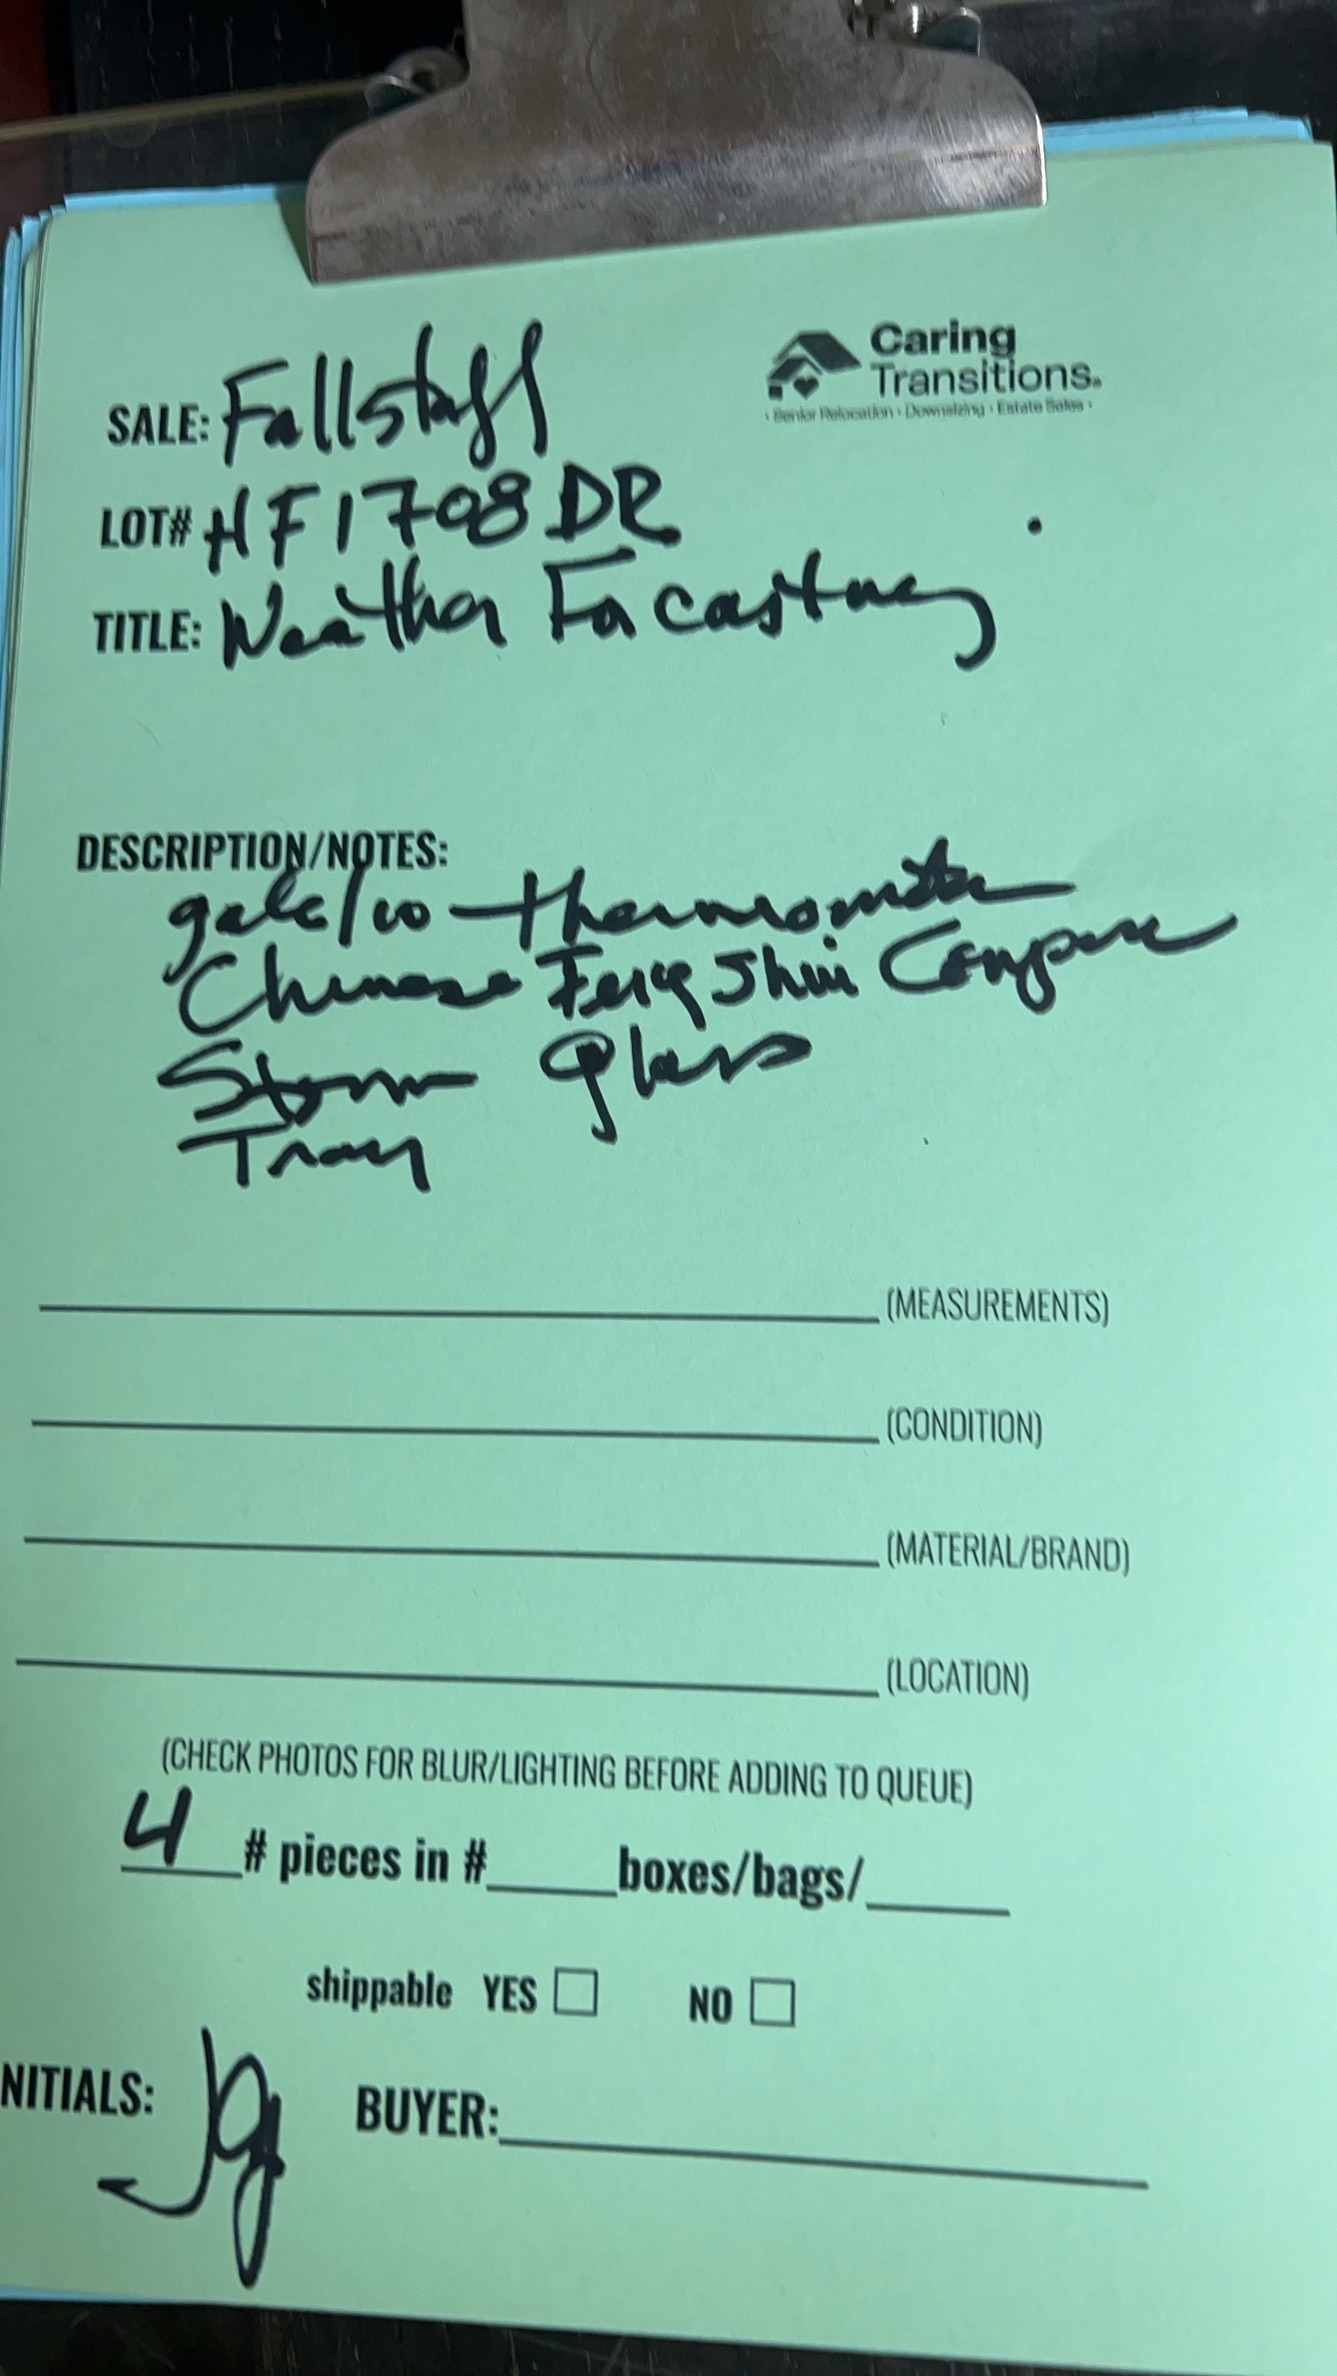 Caring
Transitions.
· Senior Relocation · Downsizing · Estate Sales ·
SALE: Fallstaff
LOT# HF1708DR
TITLE: Weather Forcasting
DESCRIPTION/NOTES:
thermometer
Chinese Feng Shui Compass
Storm glass
Tray
(MEASUREMENTS)
(CONDITION)
(MATERIAL/BRAND)
(LOCATION)
(CHECK PHOTOS FOR BLUR/LIGHTING BEFORE ADDING TO QUEUE)
4 # pieces in #_____boxes/bags/_____
shippable YES NO
NITIALS: Jg BUYER: